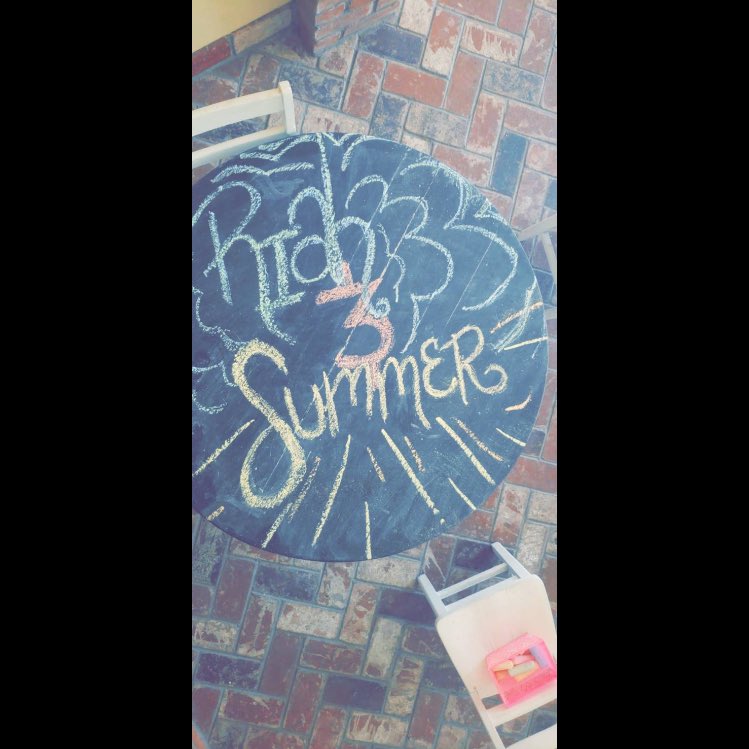 RIah
SummER